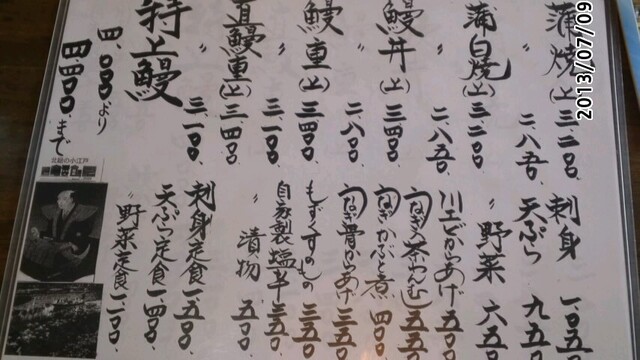 蒲焼(上) 三、二〇〇、
〃 二、八五〇、
蒲白焼(上) 三、二〇〇
〃 二、八五〇、
鰻丼(上) 三、四〇〇
〃 二、八〇〇、
鰻重(上) 三、四〇〇
〃 三、一〇〇、
直鰻重(上) 三、四〇〇
〃 三、一〇〇、
特上鰻
四、〇〇〇より
四、四〇〇、まで
刺身 一、〇五〇
天ぷら 九五〇
〃 野菜 六五〇
川エビからあげ 五〇〇
うなぎ茶わんむし 五五〇
うなぎかぶと煮 四〇〇
うなぎ骨からあげ 三五〇
もずくすのもの 三五〇
自家製塩辛 三五〇
漬物 五〇〇
刺身定食 一、五〇〇、
天ぷら定食 一、四〇〇、
〃 野菜定食 一、一〇〇、
北総の小江戸
2013/07/09